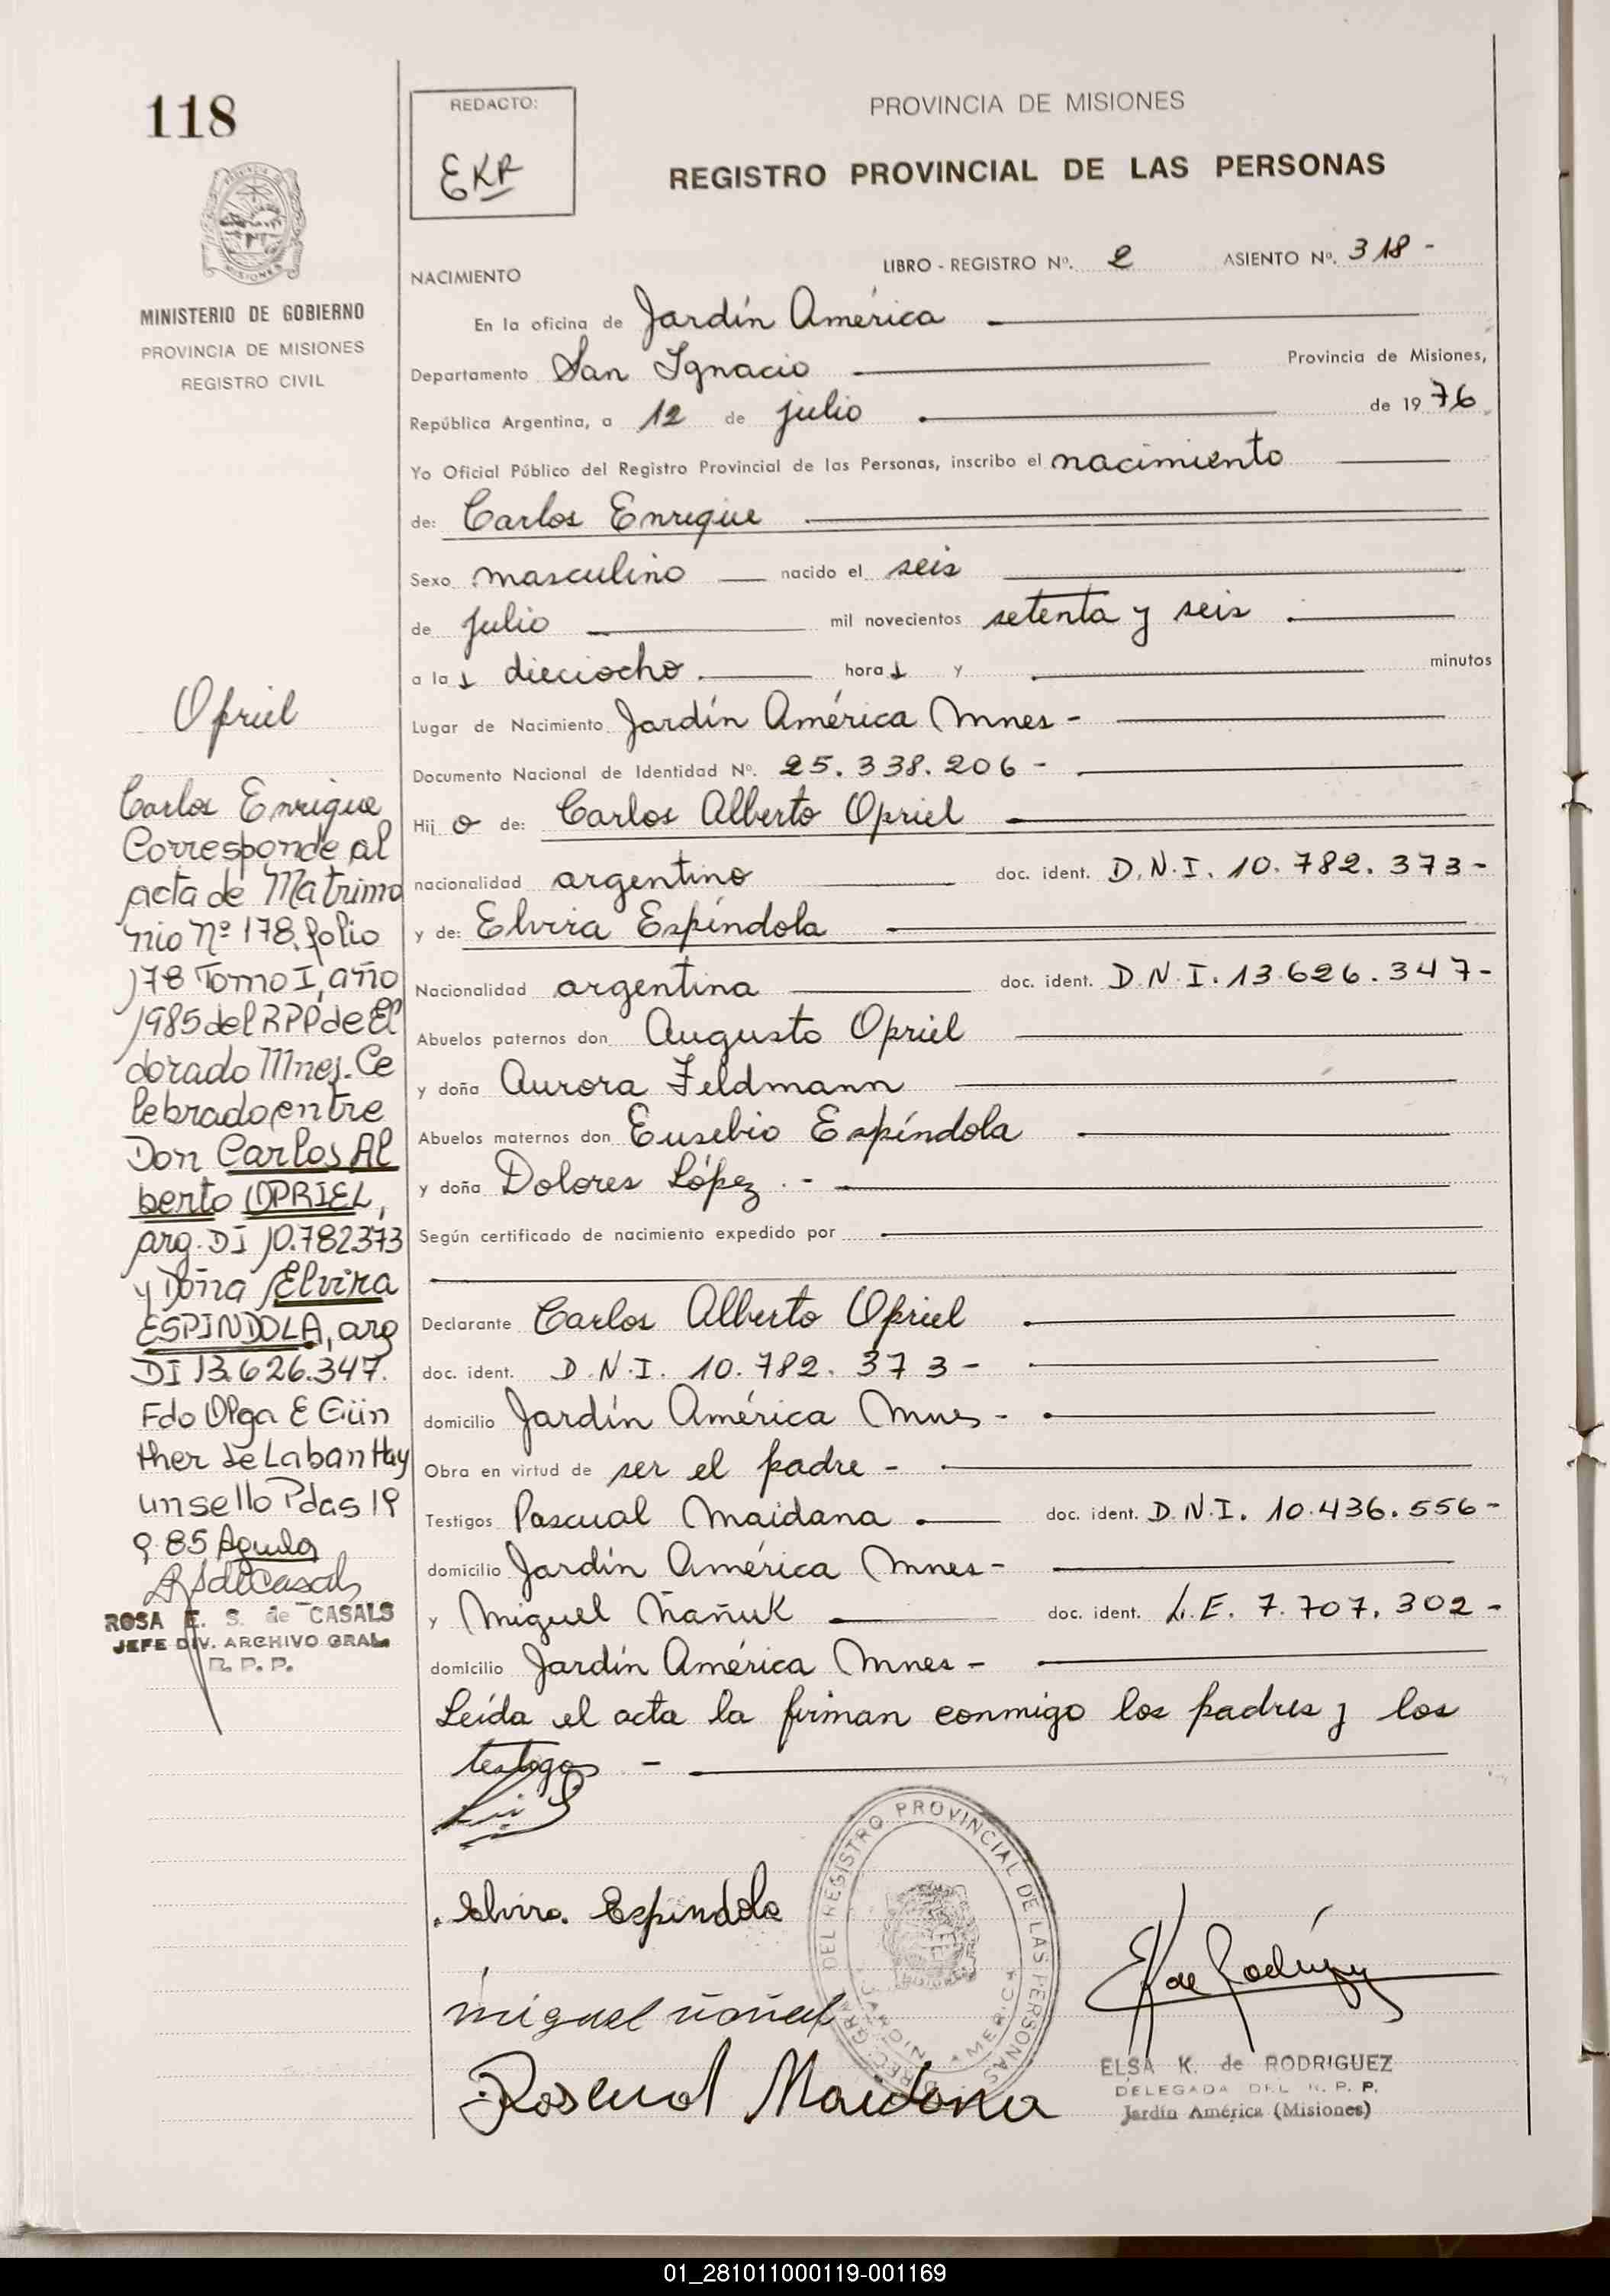 118
MINISTERIO DE GOBIERNO
PROVINCIA DE MISIONES
REGISTRO CIVIL
REDACTO:
EKR
PROVINCIA DE MISIONES
REGISTRO PROVINCIAL DE LAS PERSONAS
NACIMIENTO
LIBRO - REGISTRO Nº. 2 ASIENTO Nº. 318 -
En la oficina de Jardín América
Departamento San Ignacio Provincia de Misiones,
República Argentina, a 12 de julio de 1976
Yo Oficial Público del Registro Provincial de las Personas, inscribo el nacimiento
de: Carlos Enrique
Sexo masculino nacido el seis
de julio mil novecientos setenta y seis
a las dieciocho horas y minutos
Lugar de Nacimiento Jardín América Mnes -
Documento Nacional de Identidad Nº. 25.338.206 -
Hijo de: Carlos Alberto Opriel
nacionalidad argentino doc. ident. D.N.I. 10.782.373 -
y de: Elvira Espíndola
Nacionalidad argentina doc. ident. D.N.I. 13.626.347 -
Abuelos paternos don Augusto Opriel
y doña Aurora Feldmann
Abuelos maternos don Eusebio Espíndola
y doña Dolores López . -
Según certificado de nacimiento expedido por
Declarante Carlos Alberto Opriel
doc. ident. D.N.I. 10.782.373 -
domicilio Jardín América Mnes -
Obra en virtud de ser el padre -
Testigos Pascual Maidana doc. ident. D.N.I. 10.436.556 -
domicilio Jardín América Mnes -
y Miguel Ñañuk doc. ident. L.E. 7.707.302 -
domicilio Jardín América Mnes -
Leída el acta la firman conmigo los padres y los
testigos -
Opriel
Carlos Enrique
Corresponde al
acta de Matrimo
nio Nº 178, folio
178 Tomo I, año
1985 del RPP de El
dorado Mnes. Ce
lebrado entre
Don Carlos Al
berto OPRIEL,
arg. DI 10.782373
y Doña Elvira
ESPINDOLA, arg
DI 13.626.347.
Fdo Olga E Gün
ther de Laban Hay
un sello Pdas 19
9.85
ROSA E. S. de CASALS
JEFE DIV. ARCHIVO GRAL.
R. P. P.
Elvira Espindola
miguel
Pascual Maidana
DEL REGISTRO PROVINCIAL DE LAS PERSONAS
JARDIN AMERICA
EK de Rodríguez
ELSA K. de RODRIGUEZ
DELEGADA DEL R. P. P.
Jardín América (Misiones)
01_281011000119-001169